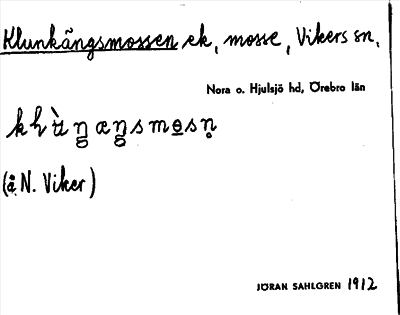 Klunkängsmossen ek, mosse, Vikers sn.
Nora o. Hjulsjö hd, Örebro län
(å N. Viker)
JÖRAN SAHLGREN 1912